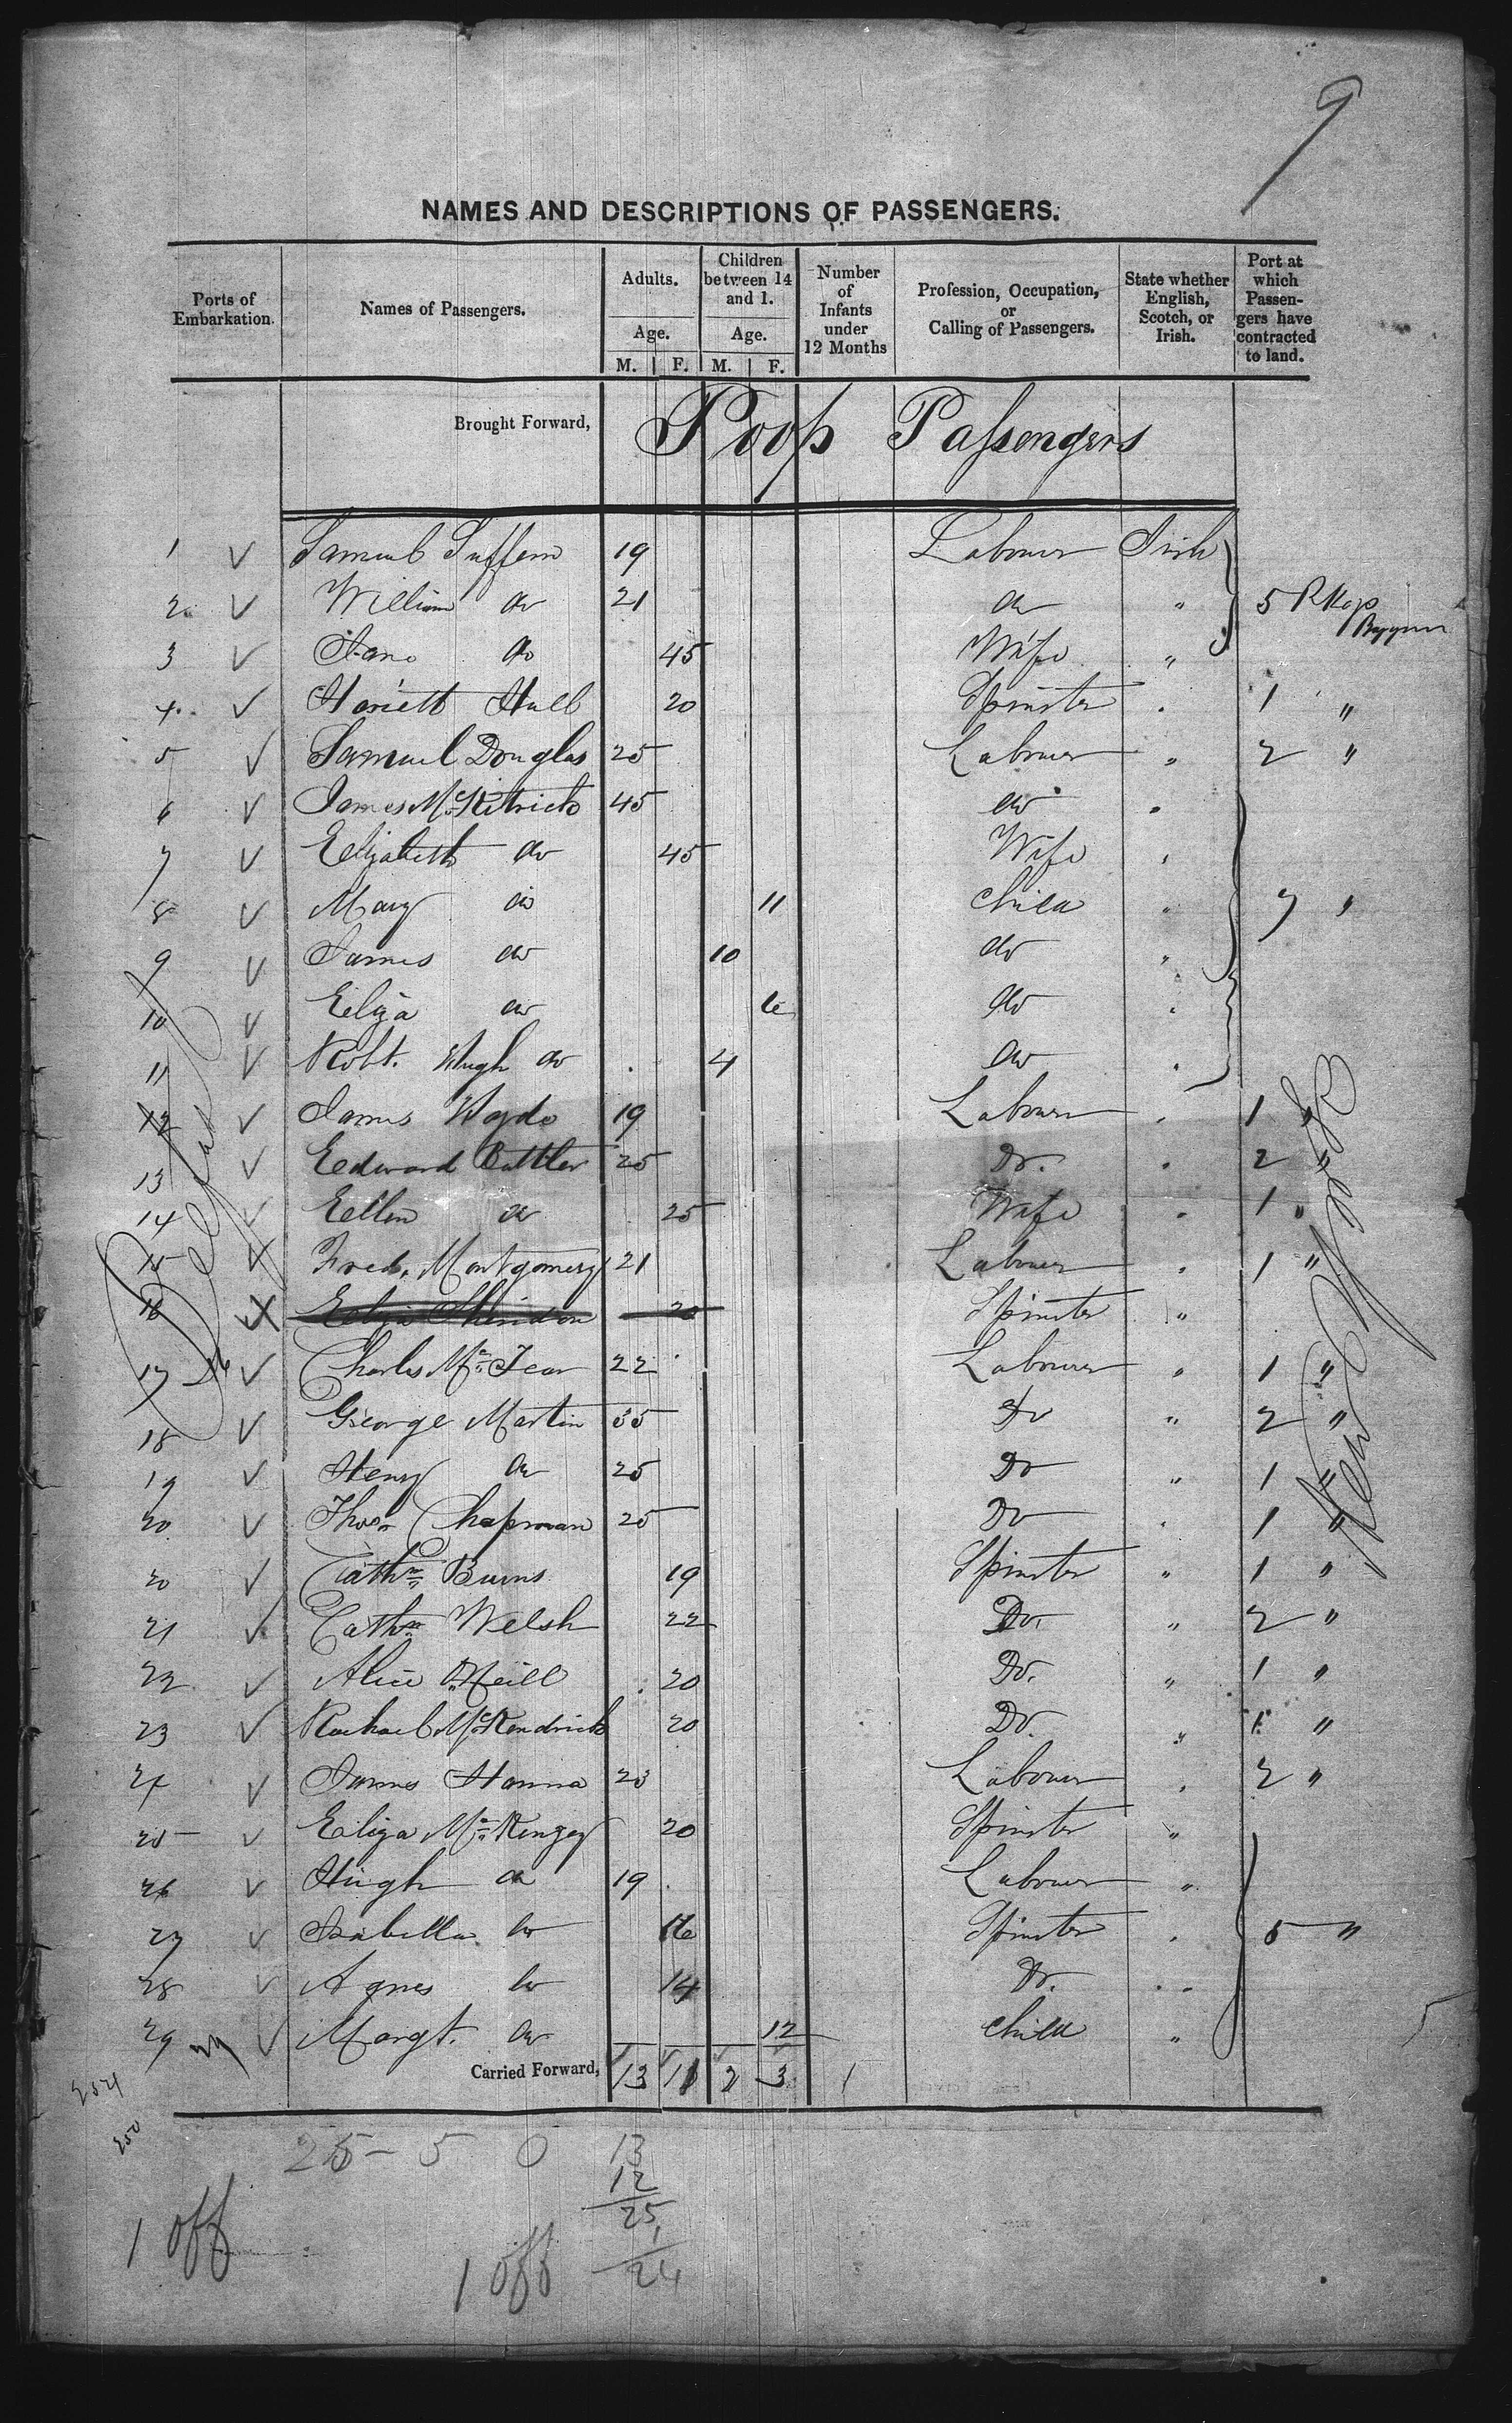 9
NAMES AND DESCRIPTIONS OF PASSENGERS.
Ports of Embarkation.
Names of Passengers.
Adults.
Age.
M. F.
Children between 14 and 1.
Age.
M. F.
Number of Infants under 12 Months
Profession, Occupation, or Calling of Passengers.
State whether English, Scotch, or Irish.
Port at which Passengers have contracted to land.
Brought Forward, Poop Passengers
1 Samuel Suffern 19 Labourer Irish
2 William do 21 do " 5 Pkgs
3 Jane do 45 Wife "
4 Hariett Hull 20 Spinster " 1 "
5 Samuel Douglas 25 Labourer " 2 "
6 James McKitrick 45 do "
7 Elizabeth do 45 Wife "
8 Mary do 11 Child " 7 "
9 James do 10 do "
10 Eliza do 6 do "
11 Robt. Hugh do 4 do "
12 James 19 Labourer " 1 "
13 Edward Cuttler 25 Do. " 2 "
14 Ellen do 25 Wife " 1 "
15 Fred. Montgomery 21 Labourer " 1 "
16 Eliza Sheridan 20 Spinster "
17 Charles 22 Labourer " 1 "
18 George Martin 35 Do " 2 "
19 Henry do 25 Do " 1 "
20 Thos Chapman 25 Do " 1 "
20 Cathne Burns 19 Spinster " 1 "
21 Cathne Welsh 22 Do. " 2 "
22 Alice O'Neill 20 Do. " 1 "
23 Rachael McKendrick 20 Do. " 1 "
24 James Hanna 23 Labourer " 2 "
25 Eliza McKenzey 20 Spinster "
26 Hugh do 19 Labourer "
27 Isabella do 16 Spinster " 5 "
28 Agnes do 14 Do. "
29 Margt. do 12 Child "
Carried Forward, 13 11 2 3 1
Belfast
New York
254
250
25 - 5 0
13
12
25
1
24
1 off
1 off